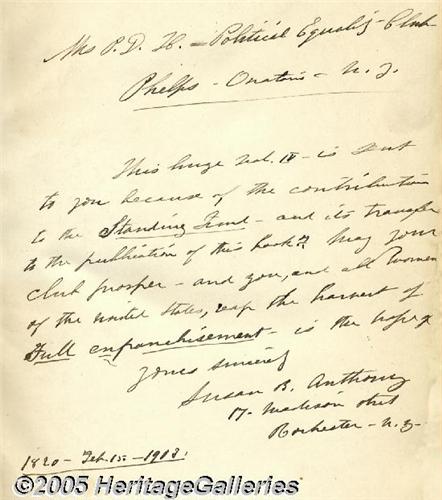 Mrs P. D. H. - Political Equality Club
Phelps - Ontario - N. Y.
This huge Vol. IV - is sent
to you because of the contribution
to the Standing Fund - and its transfer
to the publication of this book - May your
club prosper - and you, and all women
of the United States, reap the harvest of
Full enfranchisement - is the hope of
Yours sincerely
Susan B. Anthony
17 - Madison Street
Rochester - N. Y.
1820 - Feb. 15 - 1903.
©2005 HeritageGalleries